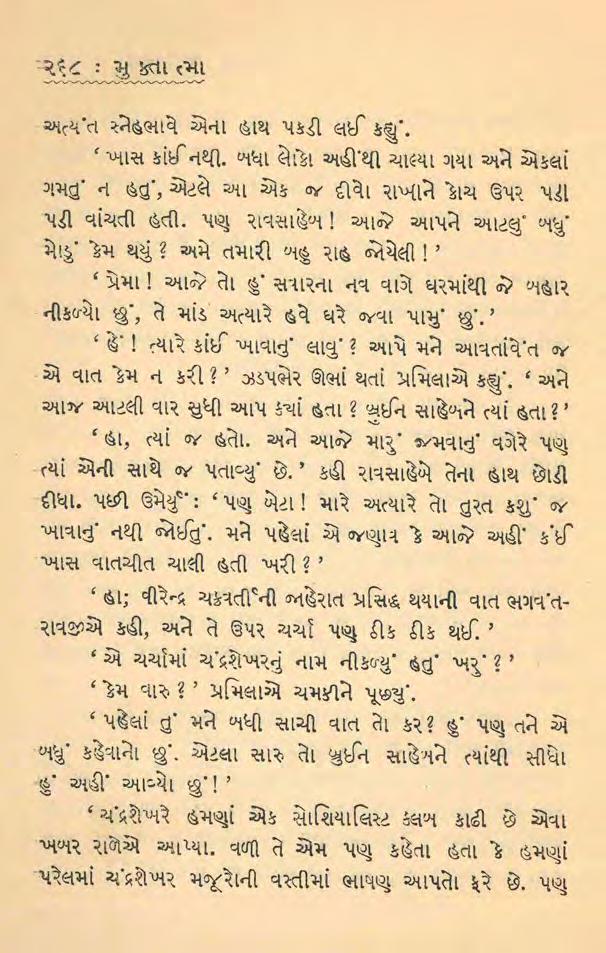 ૨૬૮ : મુ ક્તા ત્મા
અત્યંત સ્નેહભાવે એના હાથ પકડી લઈ કહ્યું.
‘ ખાસ કાંઈ નથી. બધા લોકો અહીંથી ચાલ્યા ગયા અને એકલાં
ગમતું ન હતું, એટલે આ એક જ દીવો રાખીને કોચ ઉપર પડી
પડી વાંચતી હતી. પણ રાવસાહેબ ! આજે આપને આટલું બધું
મોડું કેમ થયું ? અમે તમારી બહુ રાહ જોયેલી ! ’
‘ પ્રેમા ! આજે તો હું સવારના નવ વાગે ઘરમાંથી જે બહાર
નીકળ્યો છું, તે માંડ અત્યારે હવે ઘરે જવા પામું છું. ’
‘ હેં ! ત્યારે કાંઈ ખાવાનું લાવું ? આપે મને આવતાંવેંત જ
એ વાત કેમ ન કરી ? ’ ઝડપભેર ઊભાં થતાં પ્રમિલાએ કહ્યું. ‘ અને
આજ આટલી વાર સુધી આપ ક્યાં હતા ? બ્રુઈન સાહેબને ત્યાં હતા ? ’
‘ હા, ત્યાં જ હતો. અને આજે મારું જમવાનું વગેરે પણ
ત્યાં એની સાથે જ પતાવ્યું છે. ’ કહી રાવસાહેબે તેના હાથ છોડી
દીધા. પછી ઉમેર્યું : ‘ પણ બેટા ! મારે અત્યારે તો તુરત કશું જ
ખાવાનું નથી જોઈતું. મને પહેલાં એ જણાવ કે આજે અહીં કંઈ
ખાસ વાતચીત ચાલી હતી ખરી ? ’
‘ હા; વીરેન્દ્ર ચક્રવર્તીની જાહેરાત પ્રસિદ્ધ થયાની વાત ભગવંત-
રાવજીએ કહી, અને તે ઉપર ચર્ચા પણ ઠીક ઠીક થઈ. ’
‘ એ ચર્ચામાં ચંદ્રશેખરનું નામ નીકળ્યું હતું ખરું ? ’
‘ કેમ વારુ ? ’ પ્રમિલાએ ચમકીને પૂછ્યું.
‘ પહેલાં તું મને બધી સાચી વાત તો કર? હું પણ તને એ
બધું કહેવાનો છું. એટલા સારુ તો બ્રુઈન સાહેબને ત્યાંથી સીધો
હું અહીં આવ્યો છું! ’
‘ ચંદ્રશેખરે હમણાં એક સોશિયાલિસ્ટ ક્લબ કાઢી છે એવા
ખબર રાળેએ આપ્યા. વળી તે એમ પણ કહેતા હતા કે હમણાં
પરેલમાં ચંદ્રશેખર મજૂરોની વસ્તીમાં ભાષણ આપતો ફરે છે. પણ